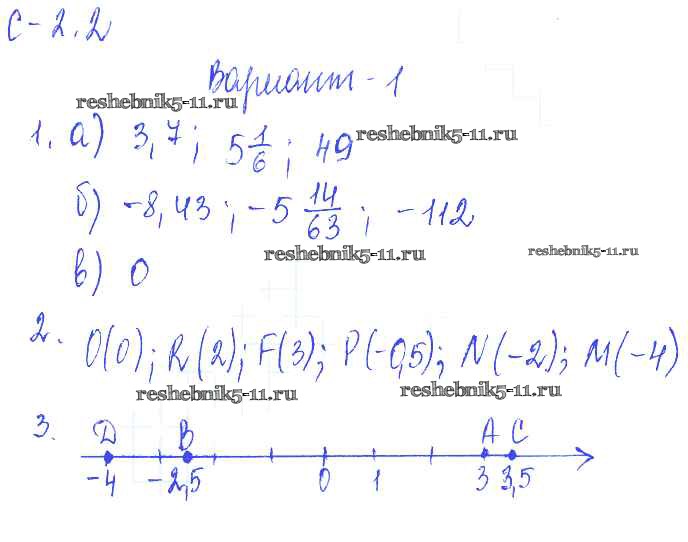 С-2.2
Вариант-1
reshebnik5-11.ru
1. а) 3,7; 5 1/6; 49
reshebnik5-11.ru
б) -8,43; -5 14/63; -112
reshebnik5-11.ru
reshebnik5-11.ru
в) 0
2. O(0); R(2); F(3); P(-0,5); N(-2); M(-4)
reshebnik5-11.ru
reshebnik5-11.ru
3. D B A C
-4 -2,5 0 1 3 3,5